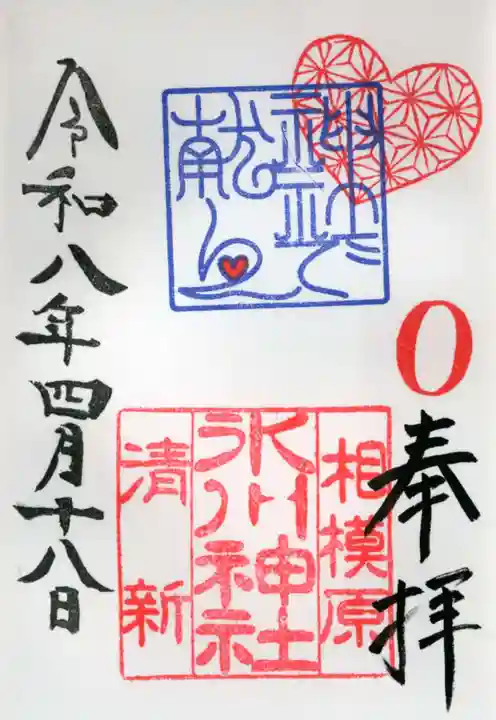 O
奉拝
相模原
氷川神社
清新
令和八年四月十八日